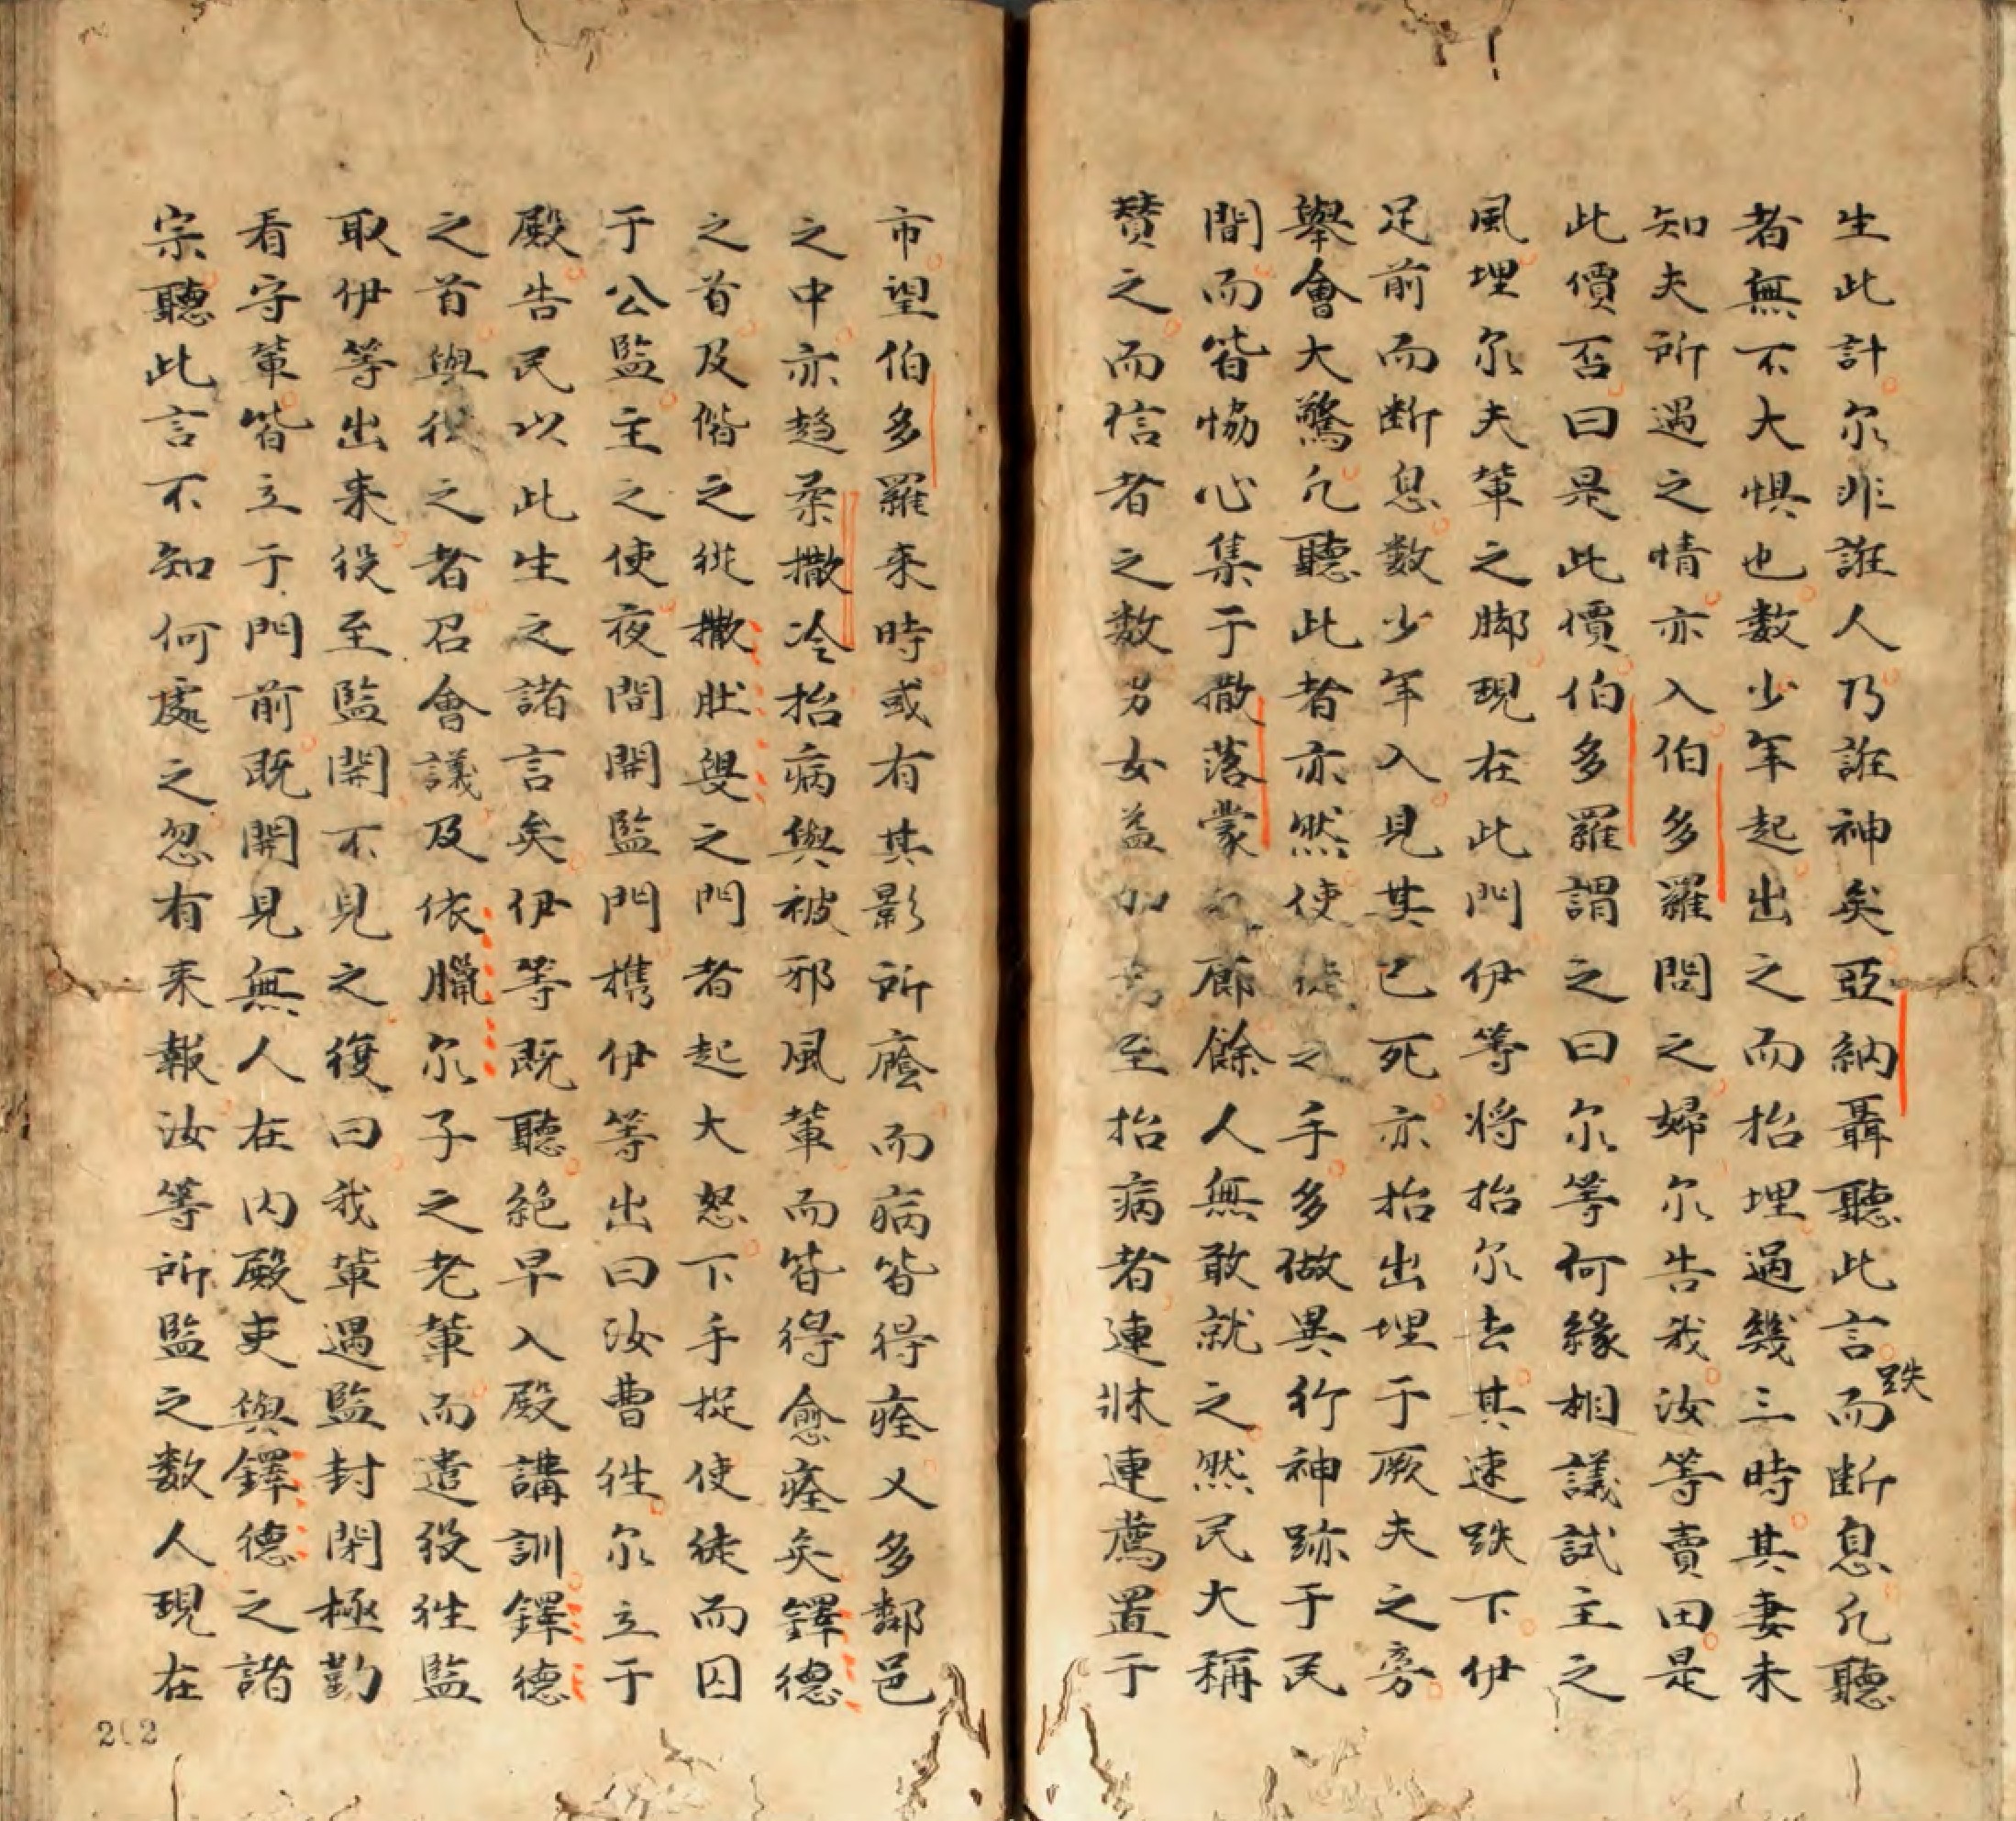 生此計尔非誑人乃誑神矣亞納聶聽此言而断息凢聽
跌
者無不大惧也数少年起出之而抬埋過幾三時其妻未
知夫所遇之情亦入伯多羅問之婦尔告我汝等賣田是
此價否曰是此價伯多羅謂之曰尔等何縁相議試主之
風埋尔夫輩之脚現在此門伊等将抬尔去其速跌下伊
足前而断息数少年入見其已死亦抬出埋于厥夫之旁
舉會大驚凢聽此者亦然使徒之手多做異行神跡于民
間而皆恊心集于撒落蒙廊餘人無敢就之然民大稱
賛之而信者之数男女益加至抬病者連牀連薦置于
市望伯多羅来時或有其影所廕而病皆得痊又多鄰邑
之中亦趋柔撒冷抬病與被邪風輩而皆得愈痊矣鐸德
之首及偕之從撒肚叟之門者起大怒下手捉使徒而囚
于公監主之使夜間開監門携伊等出曰汝曹徃尔立于
殿告民以此生之諸言矣伊等既聽絶早入殿講訓鐸德
之首與從之者召會議及依臘尔子之老輩而遣役徃監
取伊等出来役至監開不見之復曰我輩遇監封閉極勤
看守輩皆立于門前既開見無人在内殿吏與鐸德之諸
宗聽此言不知何處之忽有来報汝等所監之数人現在
202